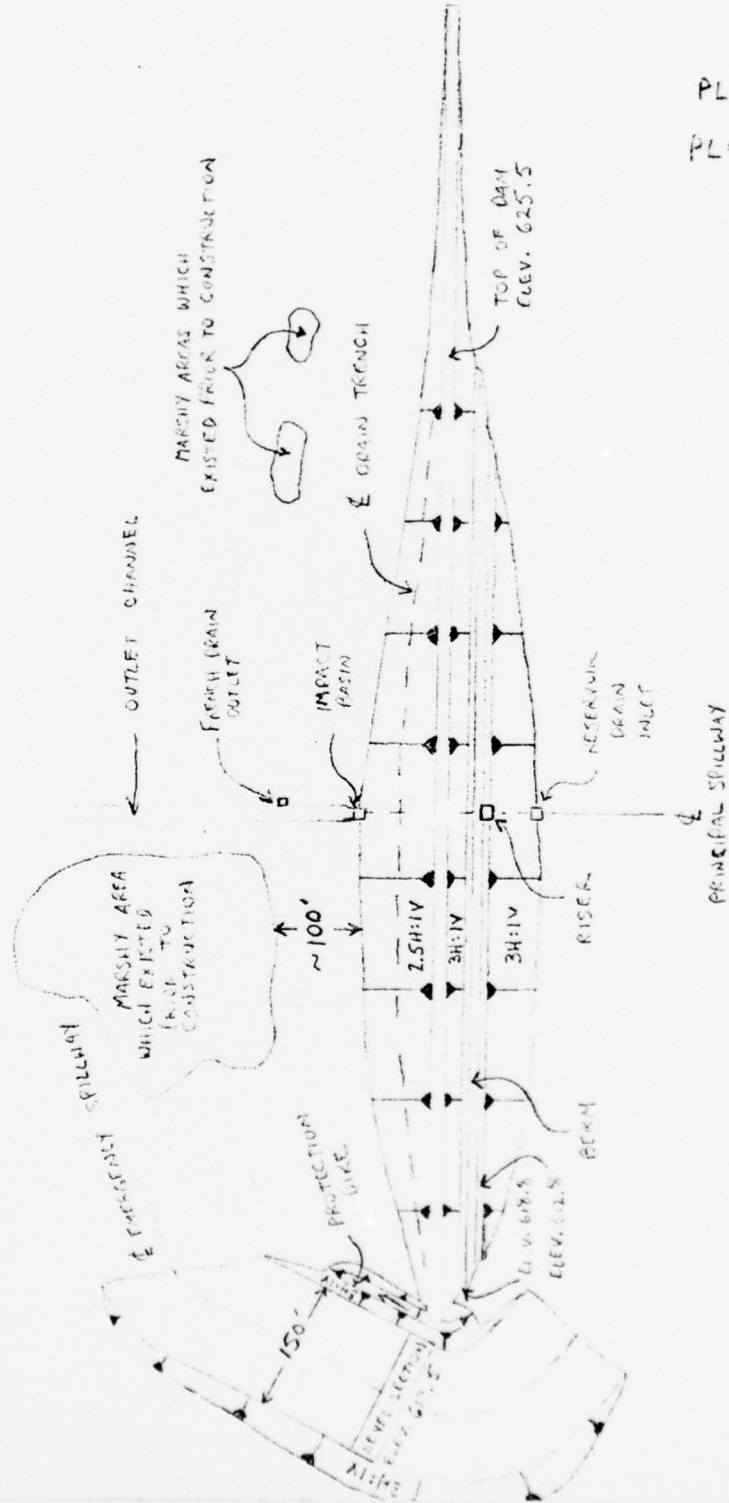 PL
PL
MARSHY AREAS WHICH
EXISTED PRIOR TO CONSTRUCTION
TOP OF DAM
ELEV. 625.5
℄ DRAIN TRENCH
OUTLET CHANNEL
FRENCH DRAIN
OUTLET
IMPACT
BASIN
RESERVOIR
DRAIN
INLET
℄
PRINCIPAL SPILLWAY
RISER
MARSHY AREA
WHICH EXISTED
PRIOR TO
CONSTRUCTION
~100'
2.5H:1V
3H:1V
3H:1V
BERM
℄ EMERGENCY SPILLWAY
PROTECTION
DIKE
ELEV. 612.8
150'
LEVEL SECTION
3H:1V